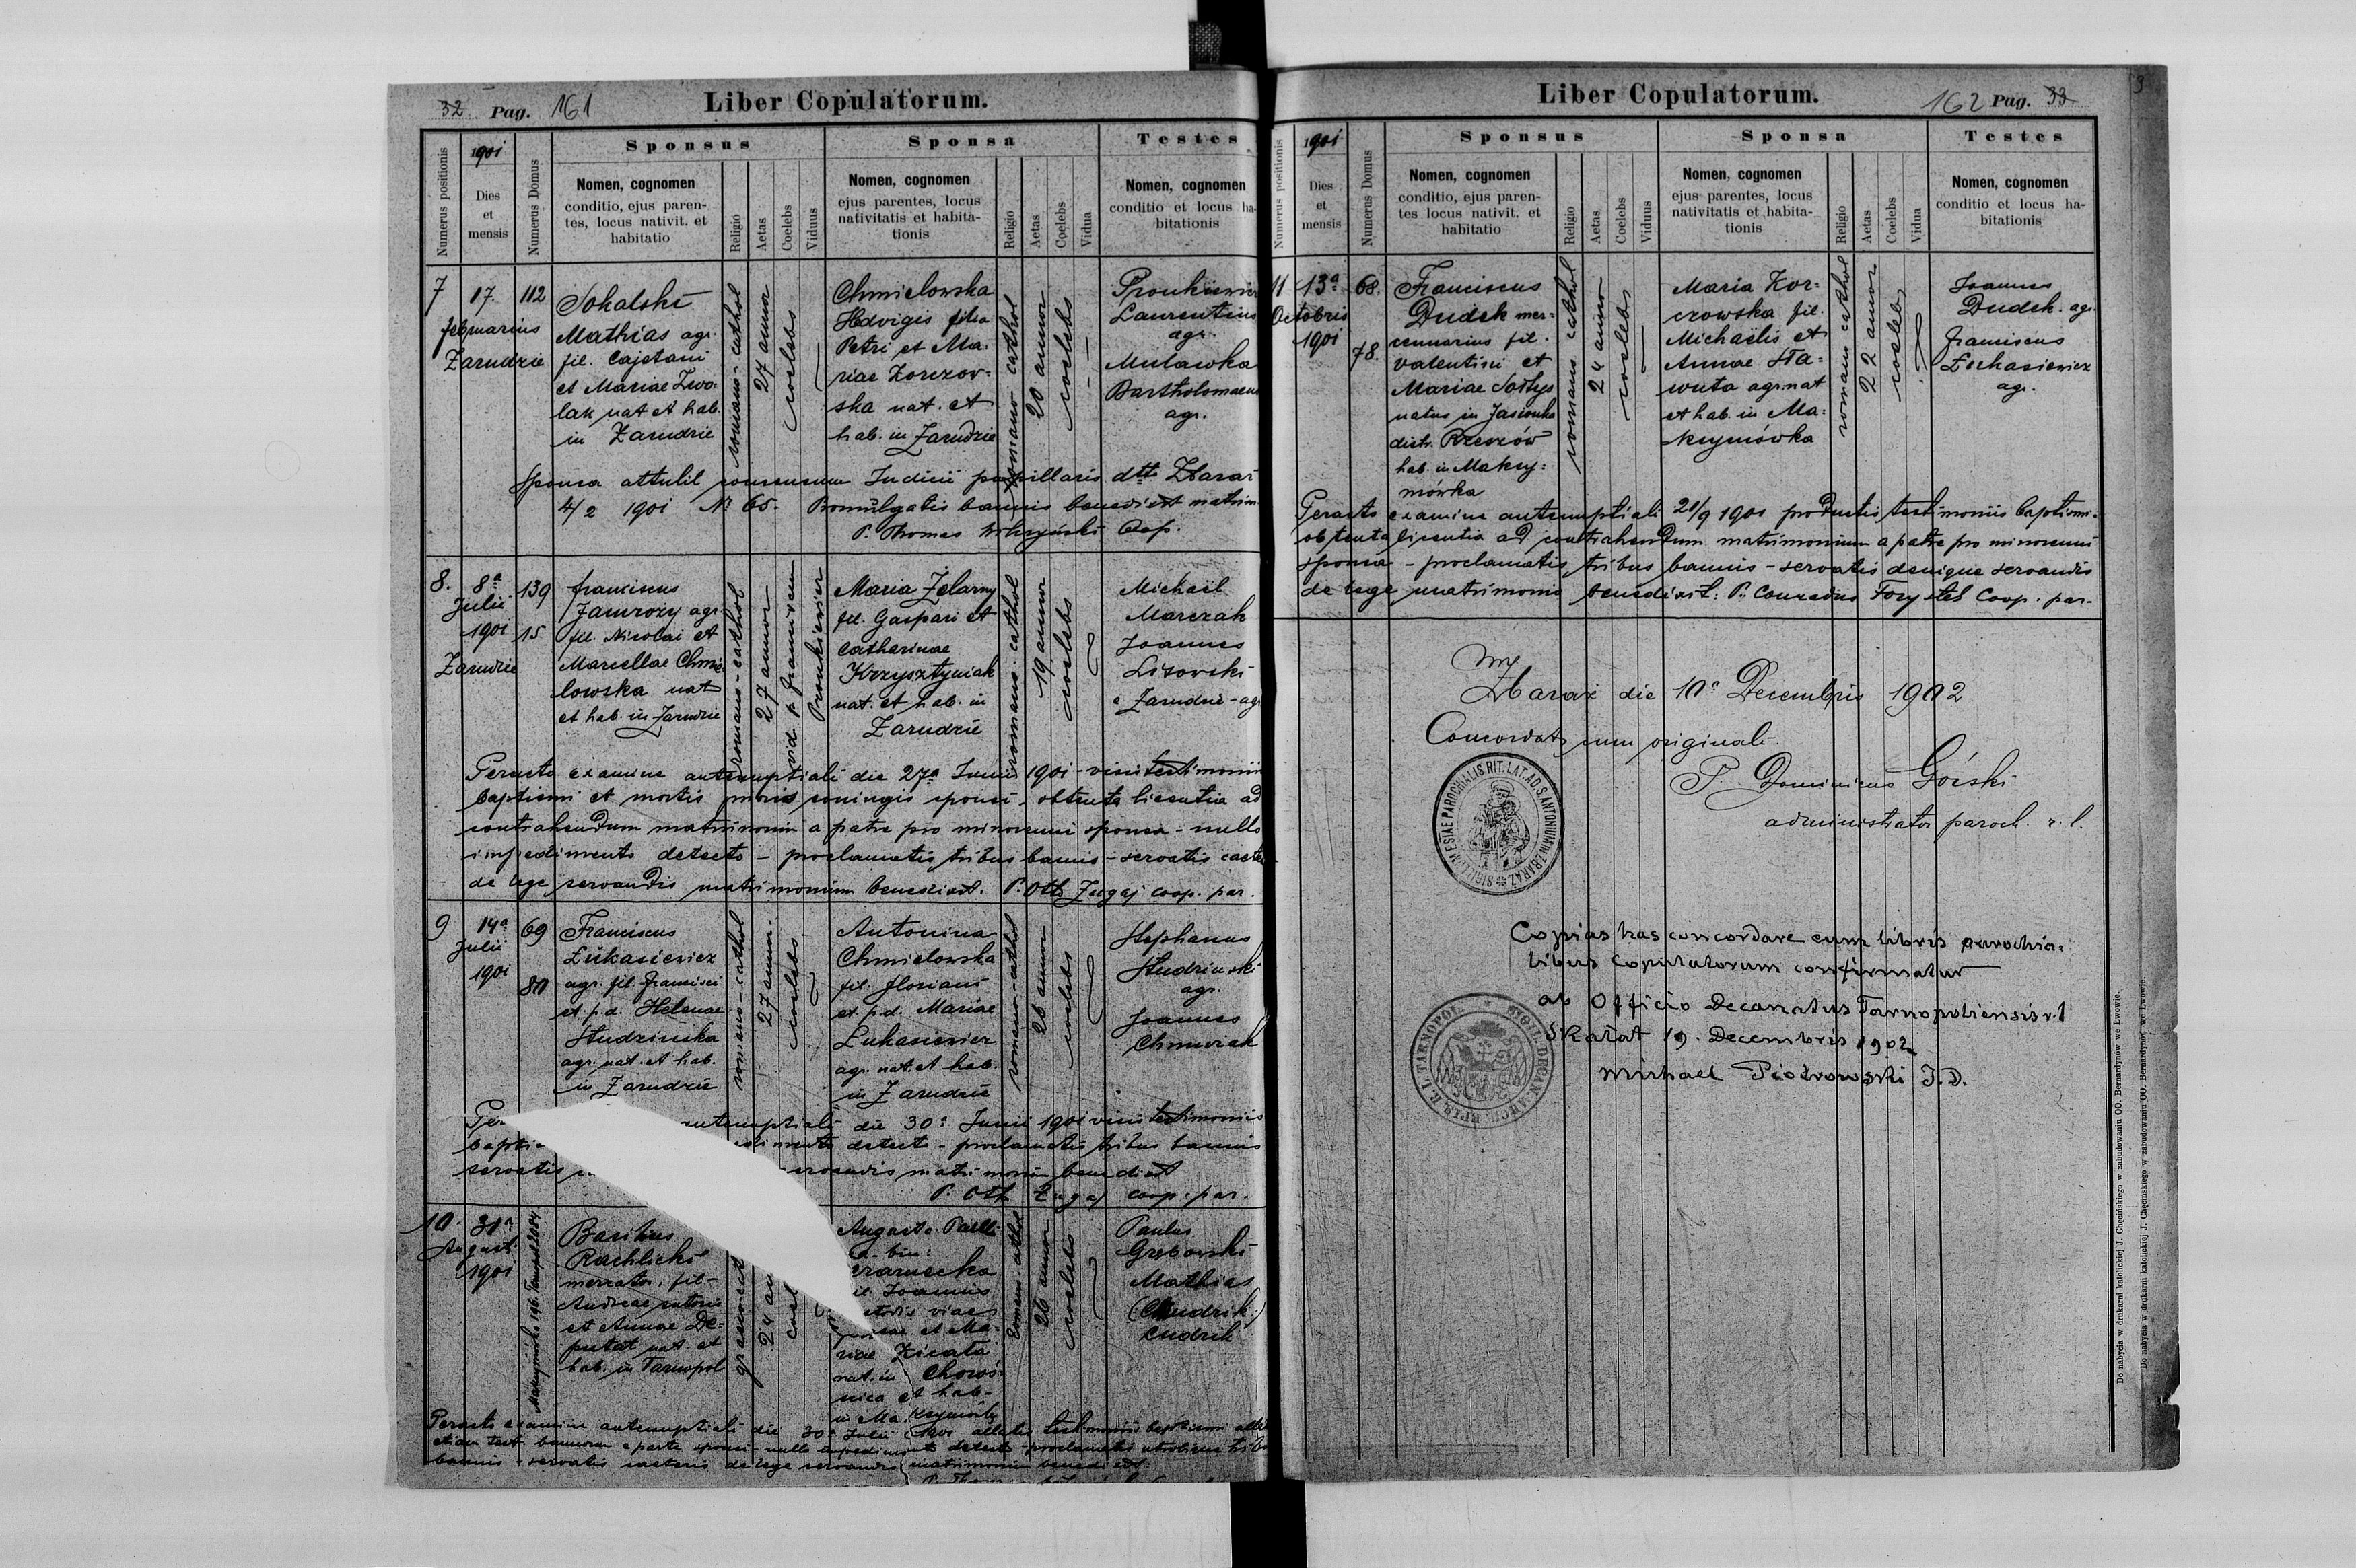 32 Pag. 161
Liber Copulatorum.
Numerus positionis
1901
Dies
et
mensis
Numerus Domus
Sponsus
Nomen, cognomen
conditio, ejus paren-
tes, locus nativit. et
habitatio
Religio
Aetas
Coelebs
Viduus
Sponsa
Nomen, cognomen
ejus parentes, locus
nativitatis et habita-
tionis
Religio
Aetas
Coelebs
Vidua
Testes
Nomen, cognomen
conditio et locus ha-
bitationis
7
17.
februarius
Zarudzie
112
Sokalski
Mathias agr.
fil. Cajetani
et Mariae Zwo-
lak nat et hab.
in Zarudzie
romano-cathol
27 annor
coelebs
Chmielowska
Hedvigis filia
Petri et Ma-
riae Korczow-
ska nat. et
hab. in Zarudzie
romano cathol
20 annor
coelebs
Pronkiewicz
Laurentius
agr.
Mulawka
Bartholomaeus
agr.
Sponsa attulit consensum Judicii pupillaris dtto Zbaraż
4/2 1901 Nr 65. Promulgatis bannis benedixit matrim
P. Thomas Coop.
8.
8va
Julii
1901
Zarudzie
139
15
Franciscus
Jamrozy agr
fil. Nicolai et
Marcellae Chmie-
lowska nat
et hab. in Zarudzie
romano-cathol
27 annor
vid p. Francisca
Pronkiewicz
Maria Żelazny
fil. Gaspari et
Catharinae
Krzysztyniak
nat. et hab. in
Zarudzie
romano-cathol
19 annor
coelebs
Michaël
Marczak
Joannes
Lisowski
e Zarudzie-agr
Peracto examine antenuptiali die 27a Junii 1901-visis testimoniis
baptismi et mortis prioris coniugis sponsi, obtenta licentia ad
contrahendum matrimonium a patre pro minorenni sponsa-nullo
impedimento detecto - proclamatis tribus bannis-servatis caeteris
de lege servandis matrimonium benedixit. P. Otto Zugaj coop. par.
9
14a
Julii
1901
69
80
Franciscus
Łukasiewicz
agr. fil. Francisci
et p.d. Helenae
Studzinska
agr. nat. et hab.
in Zarudzie
romano-cathol
27 annor.
coelebs
Antonina
Chmielowska
fil. Floriani
et p.d. Mariae
Łukasiewicz
agr. nat. et hab.
in Zarudzie
romano-cathol
26 annor
coelebs
Stephanus
Studzinski
agr.
Joannes
Chmurak
Per antenuptiali die 30a Junii 1901 visis testimoniis
baptis detecto - proclamatis tribus bannis
servatis servandis matrimonium benedixit
P. Otto Zugaj coop. par.
10.
31a
August.
1901
Basilius
Rachlicki
mercator, fil-
Andreae sutoris
et Annae De-
putat nat. et
hab. in Tarnopol
24 an
coel
Augusta
fil. Joannis
et Ma-
riae Zicata
nat. in
et hab-
in Maksymówka
26 annor
coelebs
Paulus
Grabowski
Mathias
(Chudzik:)
Cudzik
Peracto examine antenuptiali die 30a Julii 1901 allatis testimoniis baptismi
bannorum a parte sponsi-nullo impedimento detecto-proclamatis utrobique
bannis servatis caeteris de lege servandis matrimonium benedixit.
Liber Copulatorum.
162 Pag. 33
Numerus positionis
1901
Dies
et
mensis
Numerus Domus
Sponsus
Nomen, cognomen
conditio, ejus paren-
tes locus nativit. et
habitatio
Religio
Aetas
Coelebs
Viduus
Sponsa
Nomen, cognomen
ejus parentes, locus
nativitatis et habita-
tionis
Religio
Aetas
Coelebs
Vidua
Testes
Nomen, cognomen
conditio et locus ha-
bitationis
11
13a
Octobris
1901
68.
78.
Franciscus
Dudek mer-
cennarius fil.
Valentini et
Mariae Sołtys
natus in Jasionka
distr. Rzeszów
hab. in Maksy-
mówka
romano cathol
24 annor
coelebs
Maria Kor-
czowska fil.
Michaëlis et
Annae Sła-
wuta agr. nat
et hab. in Ma-
ksymówka
romano cathol
22 annor
coelebs
Joannes
Dudek. agr
Franciscus
Łukasiewicz
agr.
Peracto examine antenuptiali 21/9 1901 productis testimoniis baptismi-
obtenta licentia ad contrahendum matrimonium a patre pro minorenni
sponsa - proclamatis tribus bannis - servatis denique servandis
de lege matrimonio benedixit: P. Conradus Coop. par-
Zbaraż die 10a Decembris 1902
Concordat cum originali
P. Dominicus Górski
administrator paroch. r. l.
SIGILLUM ECCLESIAE PAROCHIALIS RIT. LAT. AD. S. ANTONIUM IN ZBARAŻ
Copias has concordare cum libris parochia-
libus copulatorum confirmatur
ab Officio Decanatus Tarnopoliensis r.l
Skałat 19. Decembris 1902
Michael Piotrowski J.D.
Do nabycia w drukarni katolickiej J. Chęcińskiego w zabudowaniu OO. Bernardynów we Lwowie.
Do nabycia w drukarni katolickiej J. Chęcińskiego w zabudowaniu OO. Bernardynów we Lwowie.